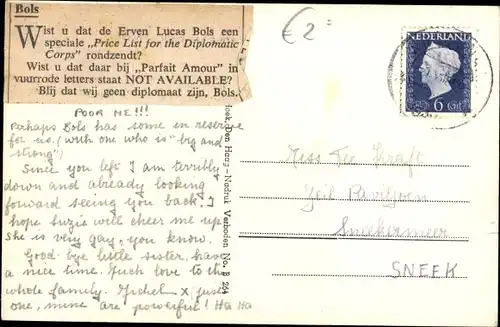 Bols
Wist u dat de Erven Lucas Bols een
speciale „Price List for the Diplomatic
Corps" rondzendt?
Wist u dat daar bij „Parfait Amour" in
vuurrode letters staat NOT AVAILABLE?
Blij dat wij geen diplomaat zijn, Bols.
POOR ME!!!
Perhaps Bols has some in reserve
for us. (with one who is "big and
strong")
Since you left I am terribly
down and already looking
forward seeing you back. I
hope Suzie will cheer me up
she is very gay, you know.
Good bye little sister, have
a nice time. Much love to the
whole family. Michel x just
one, mine are powerful! Ha Ha
€ 2=
NEDERLAND
6 Ct
Hoek, Den Haag - Nadruk Verboden No. B 244
Miss Kraft
Zeil Paviljoen
Sneekermeer
SNEEK